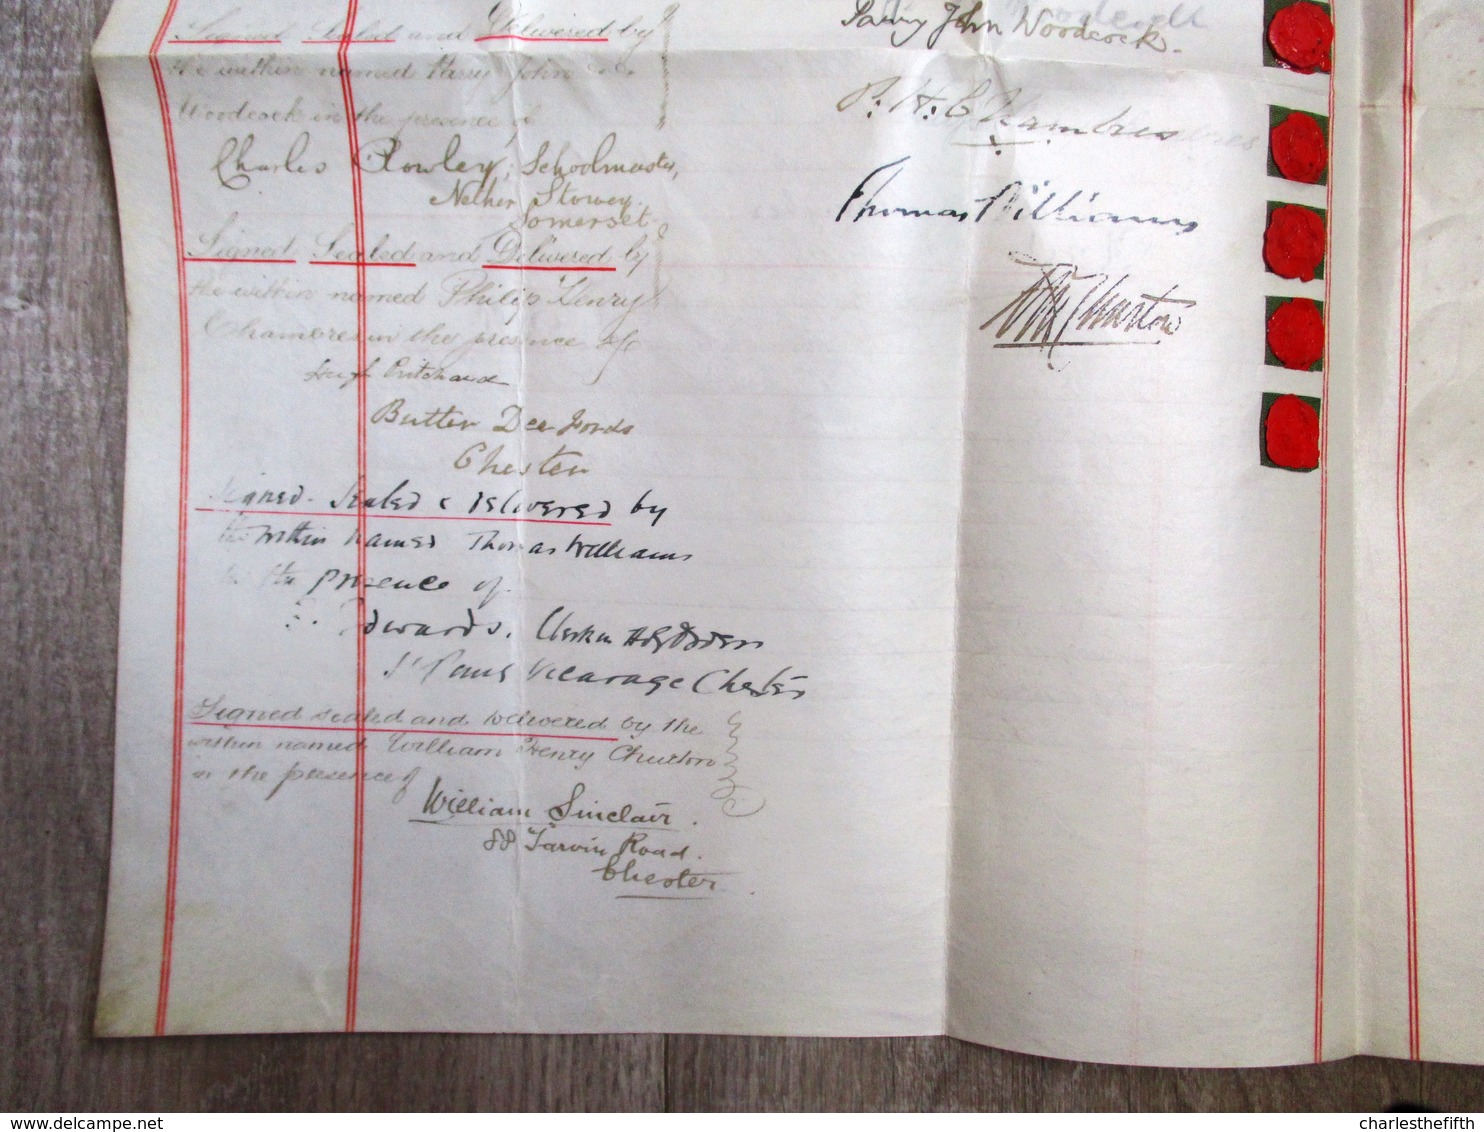 Signed Sealed and Delivered by
the within named Parry John
Woodcock in the presence of
Charles Rowley, Schoolmaster,
Nether Stowey.
Somerset
Signed Sealed and Delivered by
the within named Philip Henry
Chambres in the presence of
Hugh Pritchard
Butler Dee Fords
Chester
Signed Sealed & Delivered by
the within named Thomas Williams
in the presence of
Edwards, Clerk in H.O.
St Pauls Vicarage Chester
Signed sealed and delivered by the
within named William Henry Churton
in the presence of
William Sinclair.
88 Tarvin Road.
Chester
Parry John Woodcock.
P. H. Chambres
Thomas Williams
W H Churton
www.delcampe.net
charlesthefifth